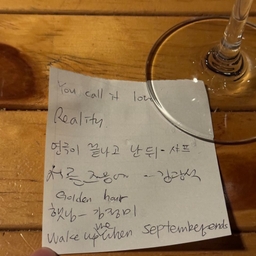 You call it love
Reality
연극이 끝나고 난 뒤 - 샤프
- 김광석
Golden hair
햇님 - 김정미
Wake me up when september ends